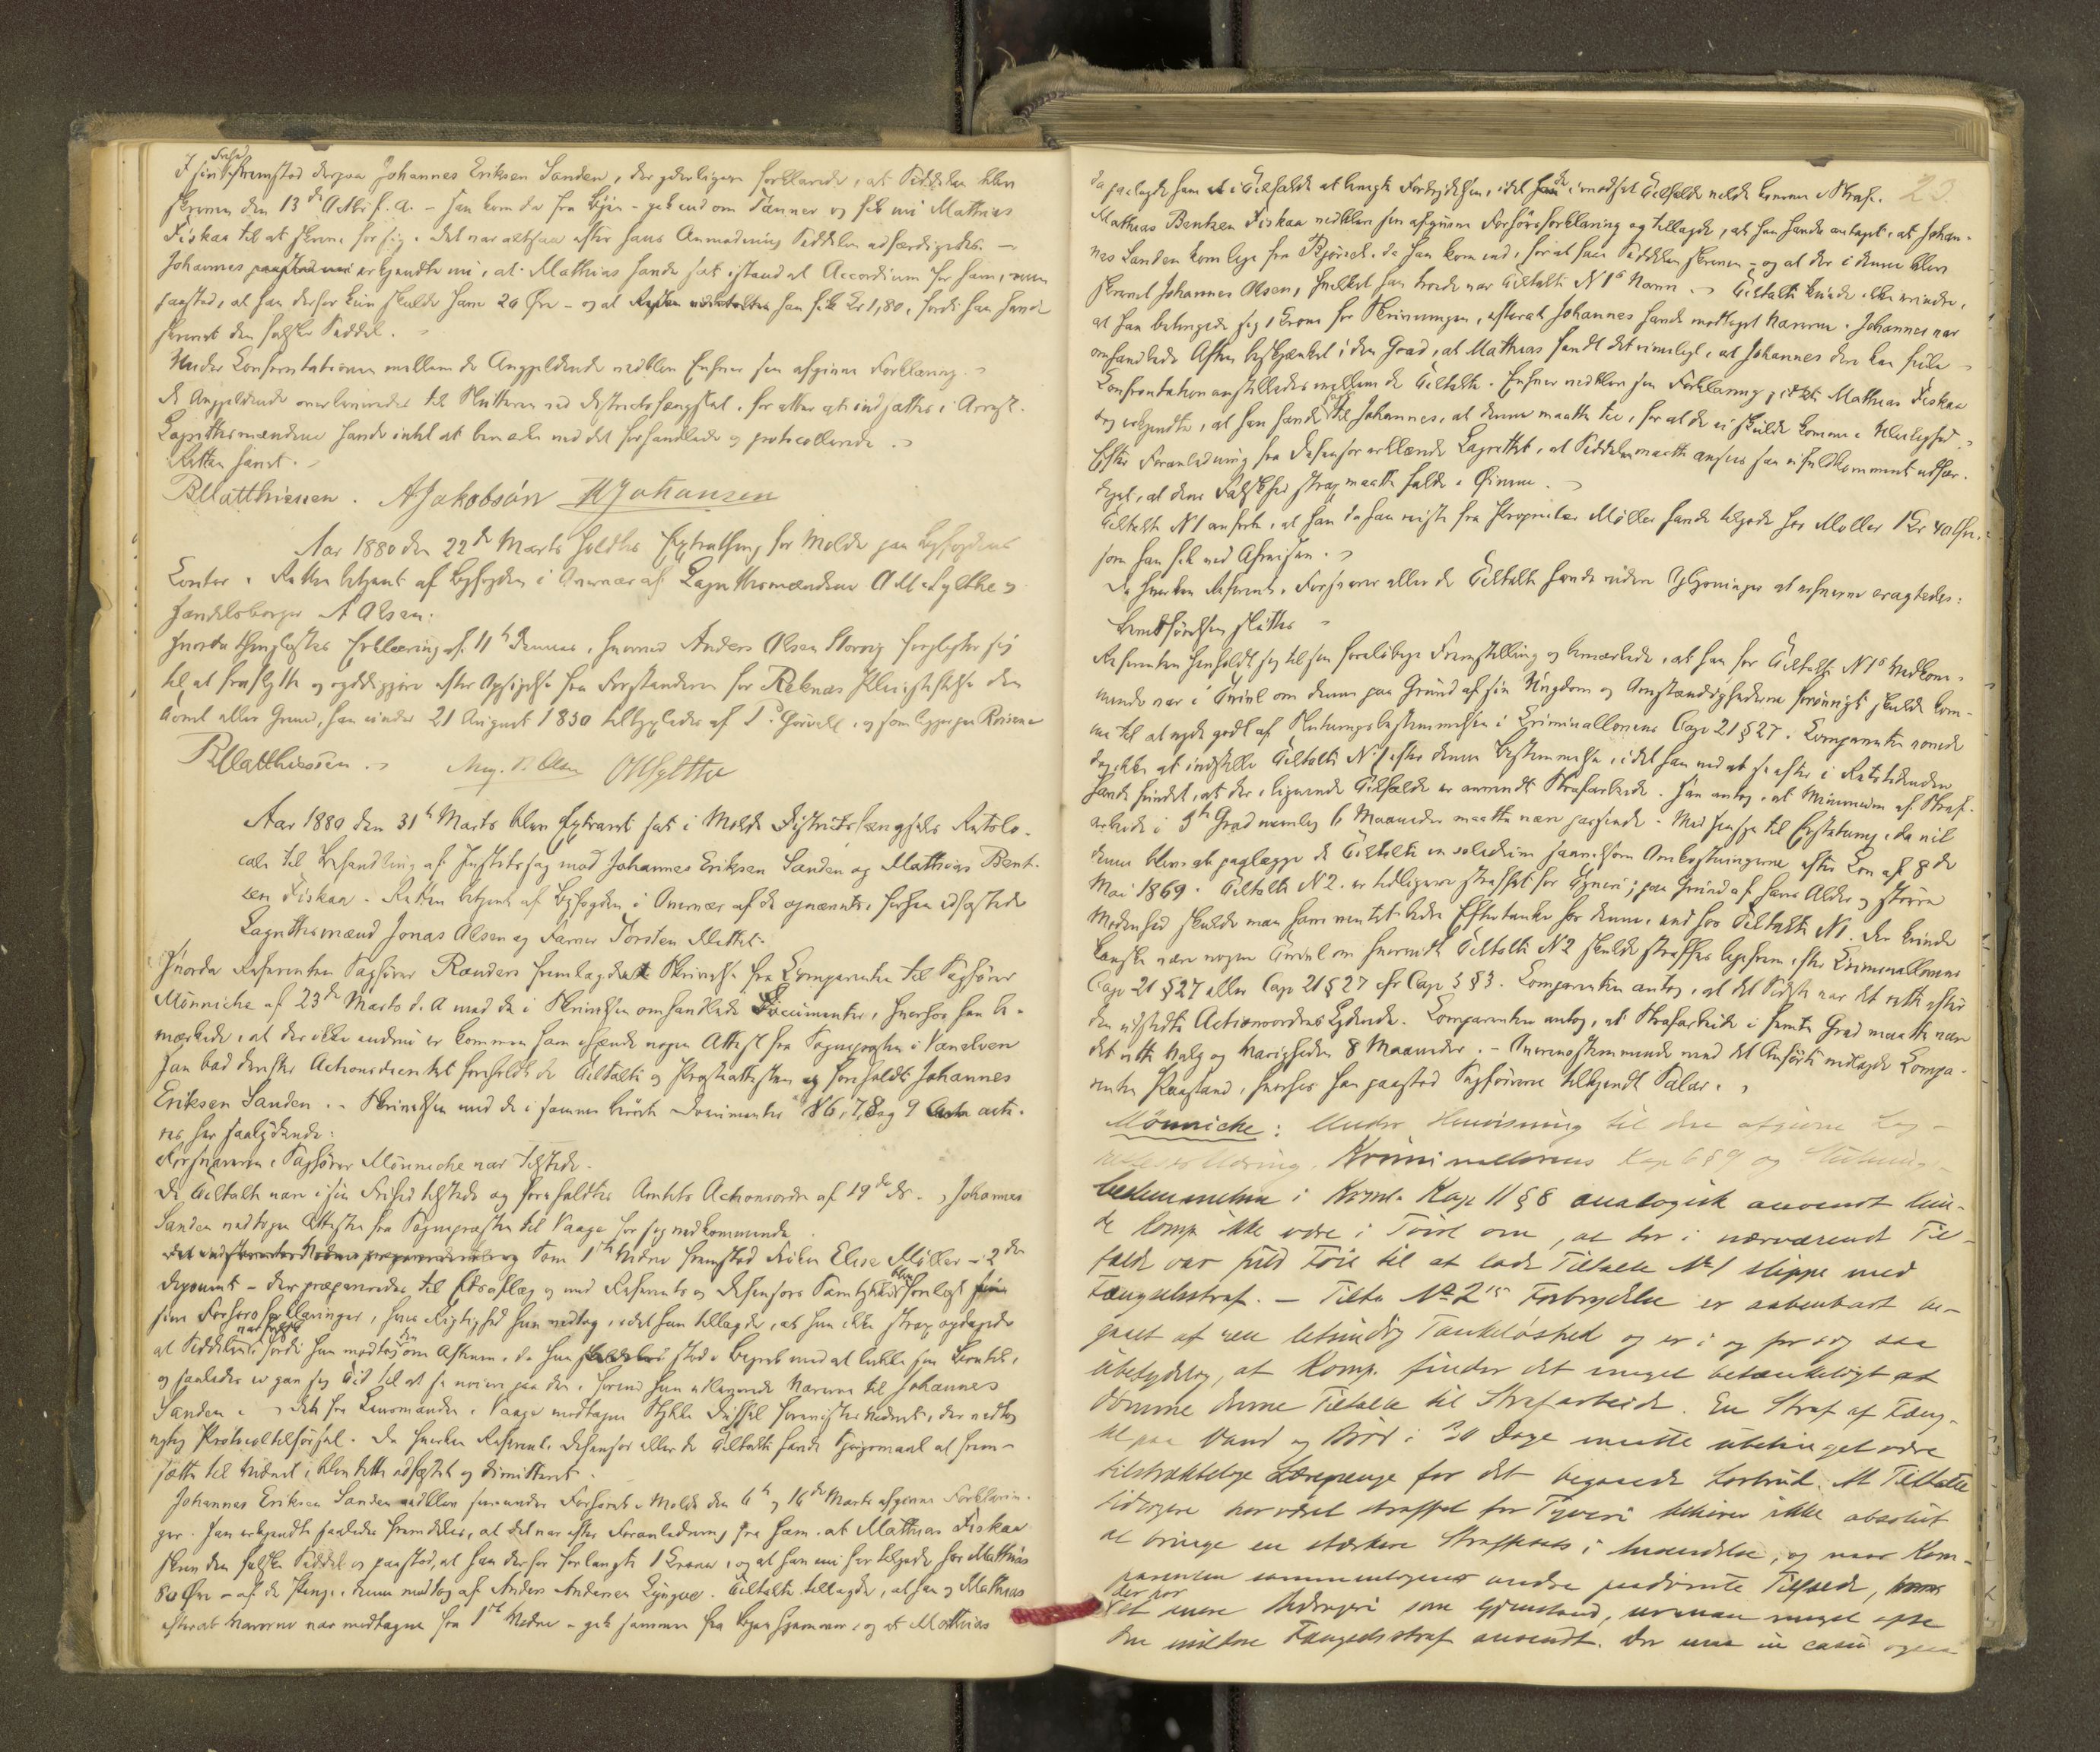 I sin Frihed fremstod derpaa Johannes Eriksen Sanden, der yderligere forklarede, at Seddelen blev
skreven den 13de f. A. – han kom da fra Byen – gik ind om Tanner og fik nu Mathias
Fiskaa til at skrive for sig. det var altsaa efter hans Anmodning Seddelen udfærdigedes. –
Johannes erkjendte nu, at Mathias havde sat istand et Accordium for ham, men
paastod, at han derfor kun skulde have 20 Øre – og at han fik Kr 1,80, fordi han havde
skrevet den falske Seddel.
Under Confrontationen mellem de Angjeldende vedblev Enhver sin afgivne Forklaring.
De Angjeldende overleveredes til Slutteren ved Distriktsfængslet, for atter at indsættes i Arrest.
Lagrettesmændene havde intet at bemærke ved det forhandlede og protocollerede.
Retten hævet.
RMatthiessen. AJakobsón HJohansen
Aar 1880 den 22de Marts holdtes Extrathing for Molde paa Byfogdens
Contor. Retten betjent af Byfogden i Overvær af Lagrettesmændene O M Sylthe og
Handelsborger A Olsen:
Hvorda thinglæstes Erklæring af 11te dennes, hvorved Anders Olsen Storvig forpligter sig
til at fraflytte og ryddiggjøre efter Opsigelse fra Forstanderen for Reknæs Pleiestiftelse den
Tomt eller Grund, han under 21 August 1850 af
RMatthiessen. Aug. N. Olsen OMSylthe
Aar 1880 den 31te Marts blev Extraret sat i Molde Distriktsfængsels Retslo-
cale til Behandling af Justitssag mod Johannes Eriksen Sanden og Mathias Bent-
sen Fiskaa. Retten betjent af Byfogden i Overvær af de opnævnte, forhen edfæstede
Lagrettesmænd Jonas Olsen og Farver Torsten Klettet.
Hvorda Referenten Sagfører Randers fremlagde Skrivelse fra Comparenten til Sagfører
Mönniche af 23de Marts d. A med de i Skrivelsen omhandlede Documenter, hvorhos han be-
mærkede, at der ikke endnu er kommen ham ihænde nogen Attest fra Sognepresten i Vanelven
Han bad derefter Actionsdecretet foreholdt de Tiltalte og Presteattesten foreholdt Johannes
Eriksen Sanden. – Skrivelsen med de i samme berörte Documenter N 6, 7, 8 og 9 acte-
res her saalydende:
Forsvareren, Sagfører Mönniche var tilstede.
De Tiltalte vare i sin Frihed tilstede og foreholdtes Amtets Actionsordre af 19de ds. Johannes
Sanden vedtoges Attesten fra Sognepresten til Vaage for sig vedkommende.
Som 1ste Vidne fremstod Frøken Elise Møller – i 2den
Deponent – der præpareredes til Edsaflæg og med Referents og Defensors Samtykke blev forelagt
sine Forhørsforklaringer, hvis Rigtighed hun vedtog, idet hun tillagde, at hun ikke strax opdagede
at Seddelen var falsk fordi hun modtog den om Aftenen, da hun stod i Begreb med at lukke sin Boutik,
og saaledes ei gav sig Tid til at se nøiere paa den, førend hun udleverede Varerne til Johannes
Sanden. det fra Lensmanden i Vaage modtagne Stykke Düffel forevistes Vidnet, der vedtog
rigtig Protocoltilførsel. Da hverken Referent, Defensor eller de Tiltalte havde Spørgsmaal at frem-
sætte til Vidnet, blev dette edfæstet og dimitteret.
Johannes Eriksen Sanden vedblev sine under Forhøret i Molde den 6te og 16de Marts afgivne Forklarin-
ger. Han erkjendte saaledes fremdeles, at det var efter Foranledning fra ham, at Mathias Fiskaa
skrev den falske Seddel og paastod, at han derfor forlangte 1 Krone, og at han nu har tilgode hos Mathias
80 Øre – af de Penge, denne modtog af Anders Andersen Lyngve. Tiltalte tillagde, at han og Mathias
efterat Varerne var modtagne fra 1ste Vidne – gik sammen fra Byen hjemover, og at Mathias
23.
da paalagde ham i Tilfælde at benegte Forbrydelsen, idet han i modsat Tilfælde vilde komme i Straf.
Mathias Bentsen Fiskaa vedblev sin afgivne Forhørsforklaring og tillagde, at han havde antaget, at Johan-
nes Sanden kom lige fra Bjørset, da han kom ind, for at faa Seddelen skreven – og at der i denne blev
skrevet Johannes Olsen, hvilket han troede var Tiltalte N 1s Navn. Tiltalte kunde ikke erindre,
at han betingede sig 1 Krone for Skrivningen, efterat Johannes havde modtaget Varerne. Johannes var
omhandlede Aften beskjænket i den Grad, at Mathias fandt det rimeligt, at Johannes deri kan feile.
Confrontation anstilledes mellem de Tiltalte. Enhver vedblev sin Forklaring, idet Mathias Fiskaa
dog erkjendte, at han havde sagt til Johannes, at denne maatte tie, for at de ei skulde komme i Uleilighed.
Efter Foranledning fra Defensor erklærede Lagrettet, at Seddelen maatte ansees saa ufuldkomment udfær-
diget, at dens Falskhed strax maatte falde i Øinene.
Tiltalte N 1 anførte, at han da han reiste fra Proprietær Møller havde tilgode hos Møller 1 Kr 40 Øre,
som han fik ved Afreisen.
Da hverken Referent, Forsvarer eller de Tiltalte havde videre Oplysninger at erhverve eragtedes:
Bevisførelsen sluttes
Referenten henholdt sig til sin foreløbige Fremstilling og bemærkede, at han for Tiltalte N 1s Vedkom-
mende var i Tvivl om denne paa Grund af sin Ungdom og Omstændighederne forøvrigt skulde kom-
me til at nyde godt af Slutningsbestemmelsen i Criminallovens Cap 21 § 27. Comparenten vovede
dog ikke at indstille Tiltalte N 1 efter denne Bestemmelse, idet han ved at se efter i Retstidenden
havde fundet, at der i lignende Tilfælde er anvendt Strafarbeide. Han antog, at Minimum af Straf-
arbeide i 5te Grad nemlig 6 Maaneder maatte være passende. Med Hensyn til Erstatning, da vil
denne blive at paalægge de Tiltalte in solidum saavelsom Omkostningerne efter Lov af 8de
Mai 1869. Tiltalte N 2. er tidligere straffet for Tyveri; paa Grund af hans Alder og större
Modenhed skulde man have ventet bedre Eftertanke hos denne, end hos Tiltalte N 1. Der kunde
kanske være nogen Tvivl om hvorvidt Tiltalte N 2 skulde straffes ligefrem efter Criminallovens
Cap 21 § 27 eller Cap 21 § 27 cfr Cap 5 § 3. Comparenten antog, at det Sidste var det rette efter
den udstedte Actionsordres Lydende. Comparenten antog, at Strafarbeide i femte Grad maatte være
det rette Valg og Varigheden 8 Maaneder. – Overensstemmende med det Anførte nedlagde Compa-
renten Paastand, hvorhos han paastod Sagførerne tilkjendt Salær.
Mönniche: Under Henvisning til den afgivne Lag-
rettes Kriminallovens Kap 6 § 9 og Slutnings-
bestemmelsen i Kriml. Kap 11 § 8 analogisk anvendt kun-
de Komp ikke være i Tvivl om, at der i nærværende Til-
fælde var fuld Föie til at lade Tiltalte No 1 slippe med
Fængselsstraf. – Tilte No 2s Forbrydelse er aabenbart be-
gaaet af ren letsindig Tankelöshed og er i og for sig saa
ubetydelig, at Komp. finder det meget betænkeligt at
dömme denne Tiltalte til Strafarbeide. En Straf af Fæng-
sel paa Vand og Bröd i 20 Dage maatte ubetinget være
tilstrækkelige Lærepenge for det begaaede Lovbrud. At Tiltalte
tidligere har været straffet for Tyveri behöver ikke absolut
at bringe en stærkere Strafsats i Anvendelse, og naar Kom-
parenten sammenligner andre paadömte Tilfælde, der har
Bedrageri som Gjenstand, ser man meget ofte
den mildere Fængselsstraf anvendt. Der in casu ogsaa